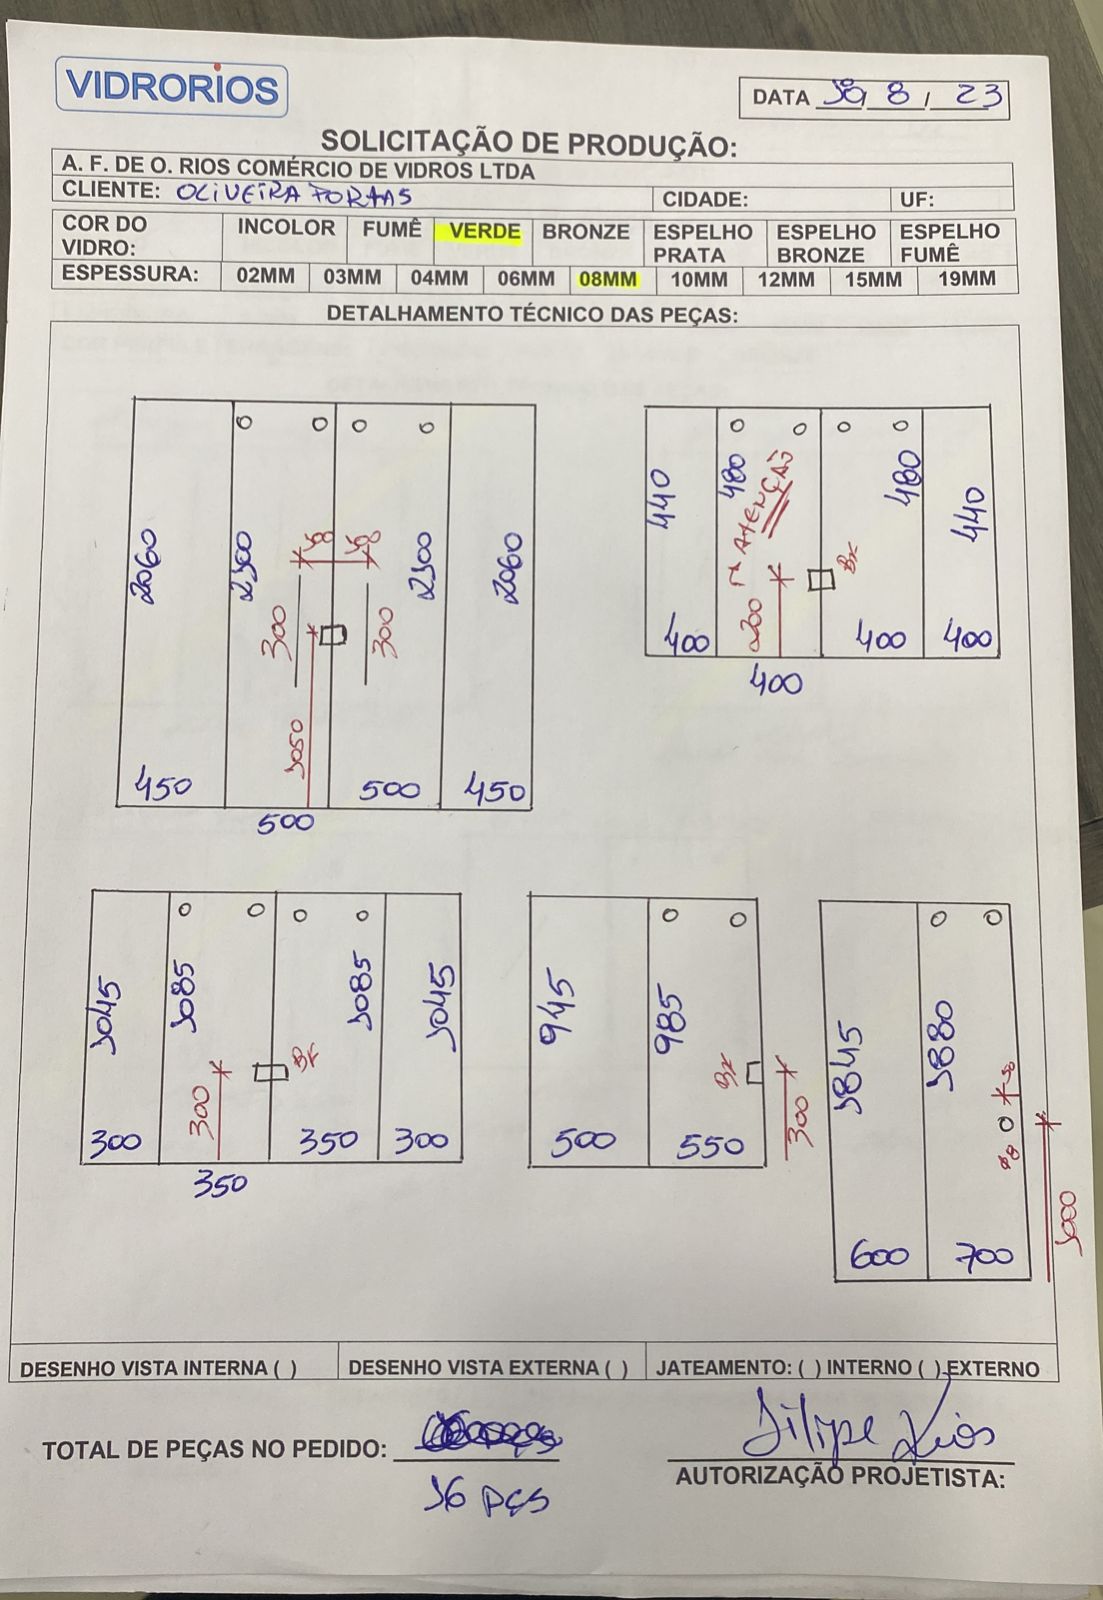 VIDRORIOS
DATA 10, 8, 23
SOLICITAÇÃO DE PRODUÇÃO:
A. F. DE O. RIOS COMÉRCIO DE VIDROS LTDA
CLIENTE: OLIVEIRA PORTAS CIDADE: UF:
COR DO VIDRO: INCOLOR FUMÊ VERDE BRONZE ESPELHO PRATA ESPELHO BRONZE ESPELHO FUMÊ
ESPESSURA: 02MM 03MM 04MM 06MM 08MM 10MM 12MM 15MM 19MM
DETALHAMENTO TÉCNICO DAS PEÇAS:
2060
2100
300
300
2100
2060
1050
450
500
500
450
440
480
ATENÇÃO
200
480
440
400
400
400
400
1045
1085
300
1085
1045
300
350
350
300
945
985
300
500
550
1845
1880
1000
600
700
DESENHO VISTA INTERNA ( ) DESENHO VISTA EXTERNA ( ) JATEAMENTO: ( ) INTERNO ( ) EXTERNO
TOTAL DE PEÇAS NO PEDIDO:
16 PÇS
Filipe Rios
AUTORIZAÇÃO PROJETISTA: